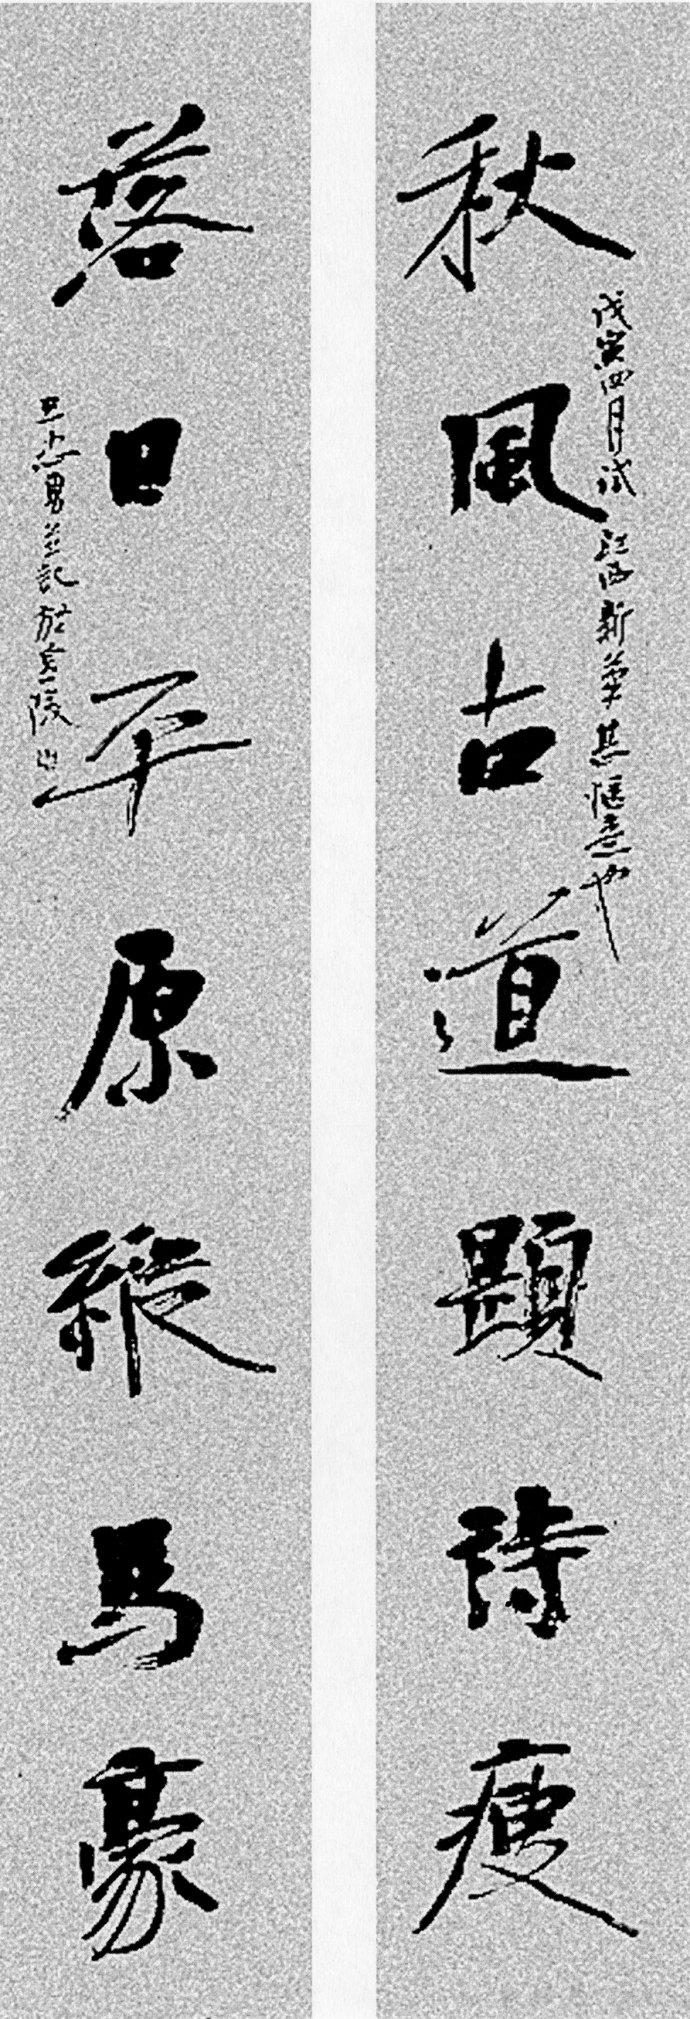 秋風古道題詩瘦
戊寅四月試江西新筆甚愜意也
落日平原縱馬豪
並記於金陵